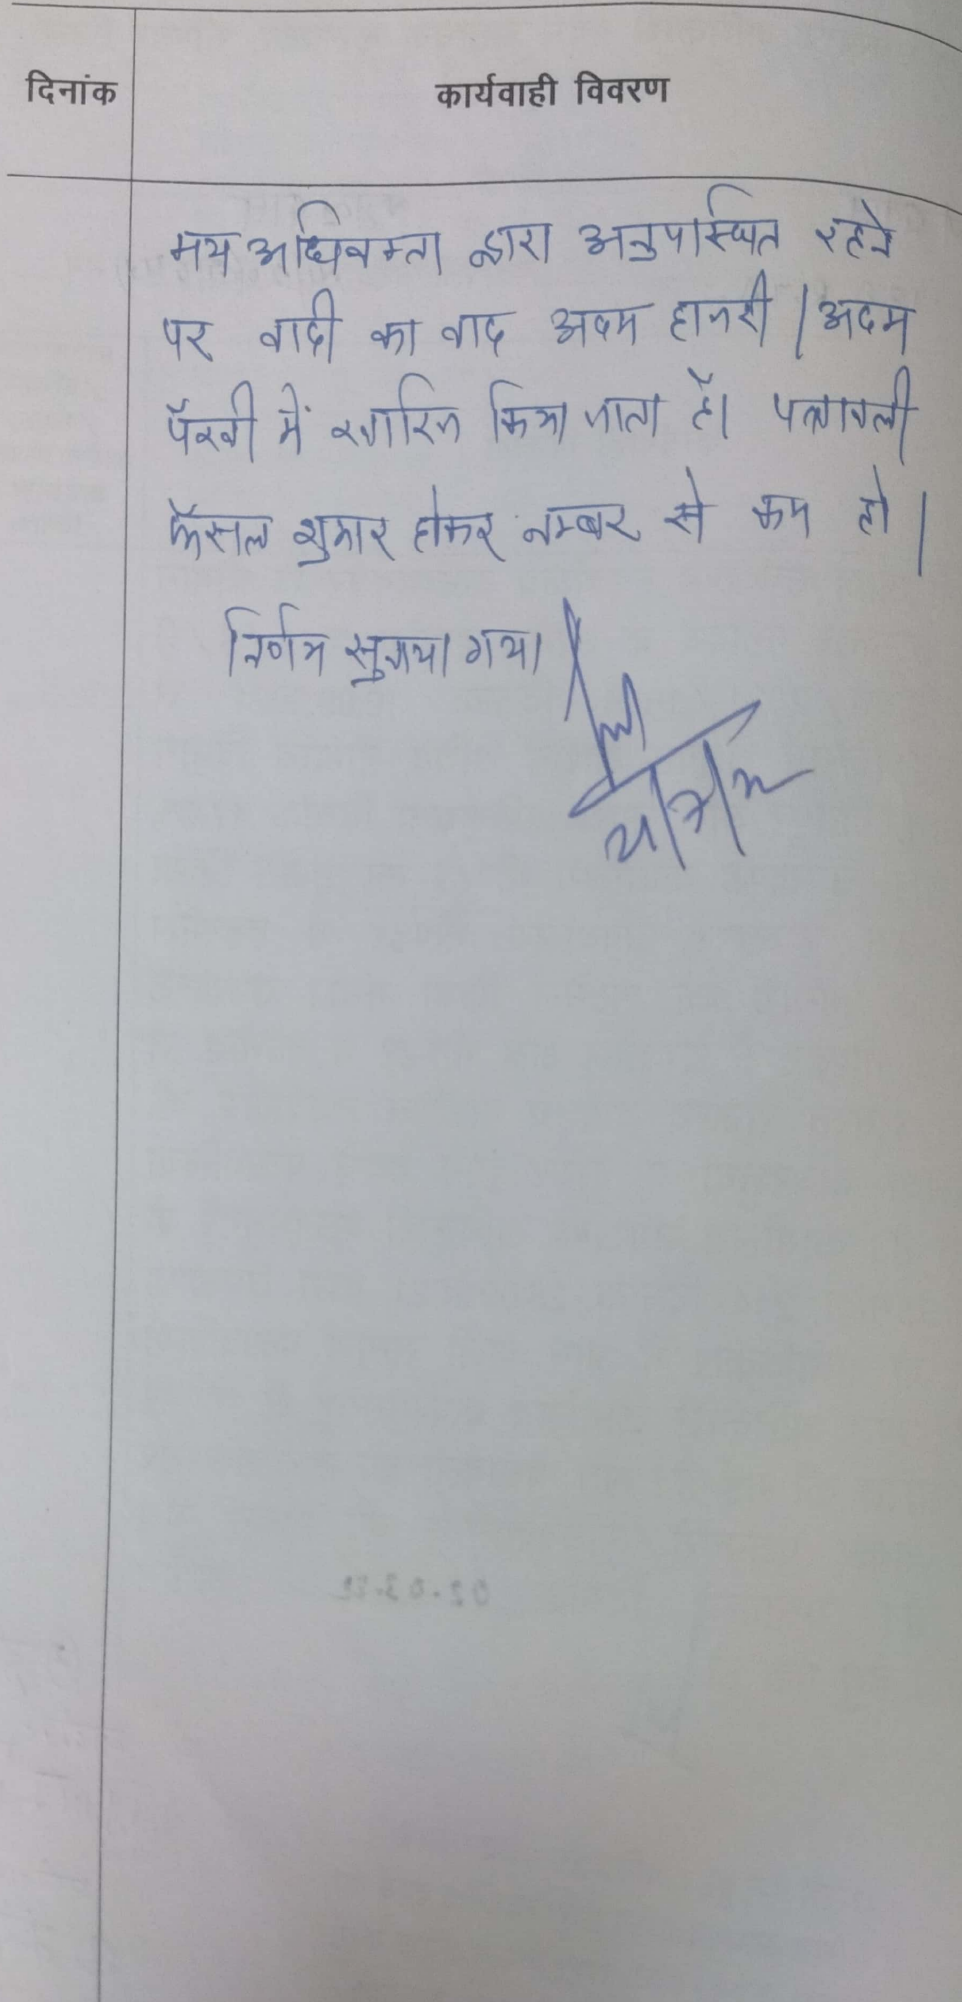 दिनांक कार्यवाही विवरण
मय अधिवक्ता द्वारा अनुपस्थित रहने
पर वादी का वाद अदम हाजरी / अदम
पैरवी में खारिज किया जाता है। पत्रावली
फैसल शुमार होकर नम्बर से कम हो।
निर्णय सुनाया गया।